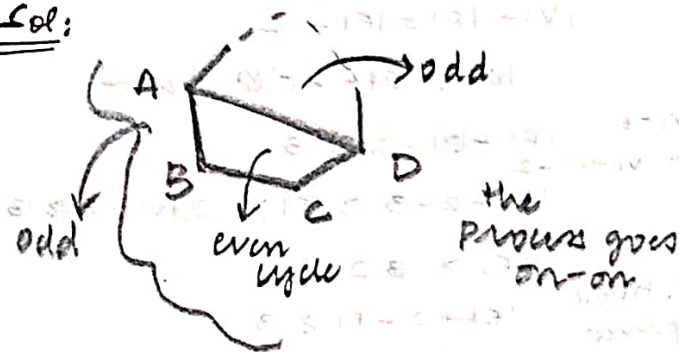 Sol:
A
odd
B
C
D
odd
even
cycle
the
process goes
on-on